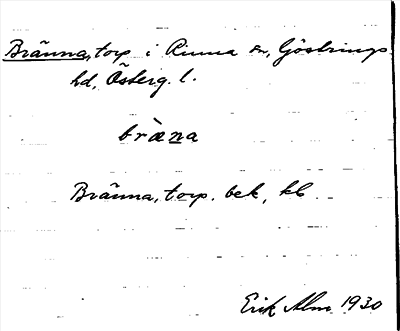 Bränna, torp i Rinna sn, Göstrings
hd, Österg. l.
bràna
Bränna, torp. bek, kb
Erik Alm 1930